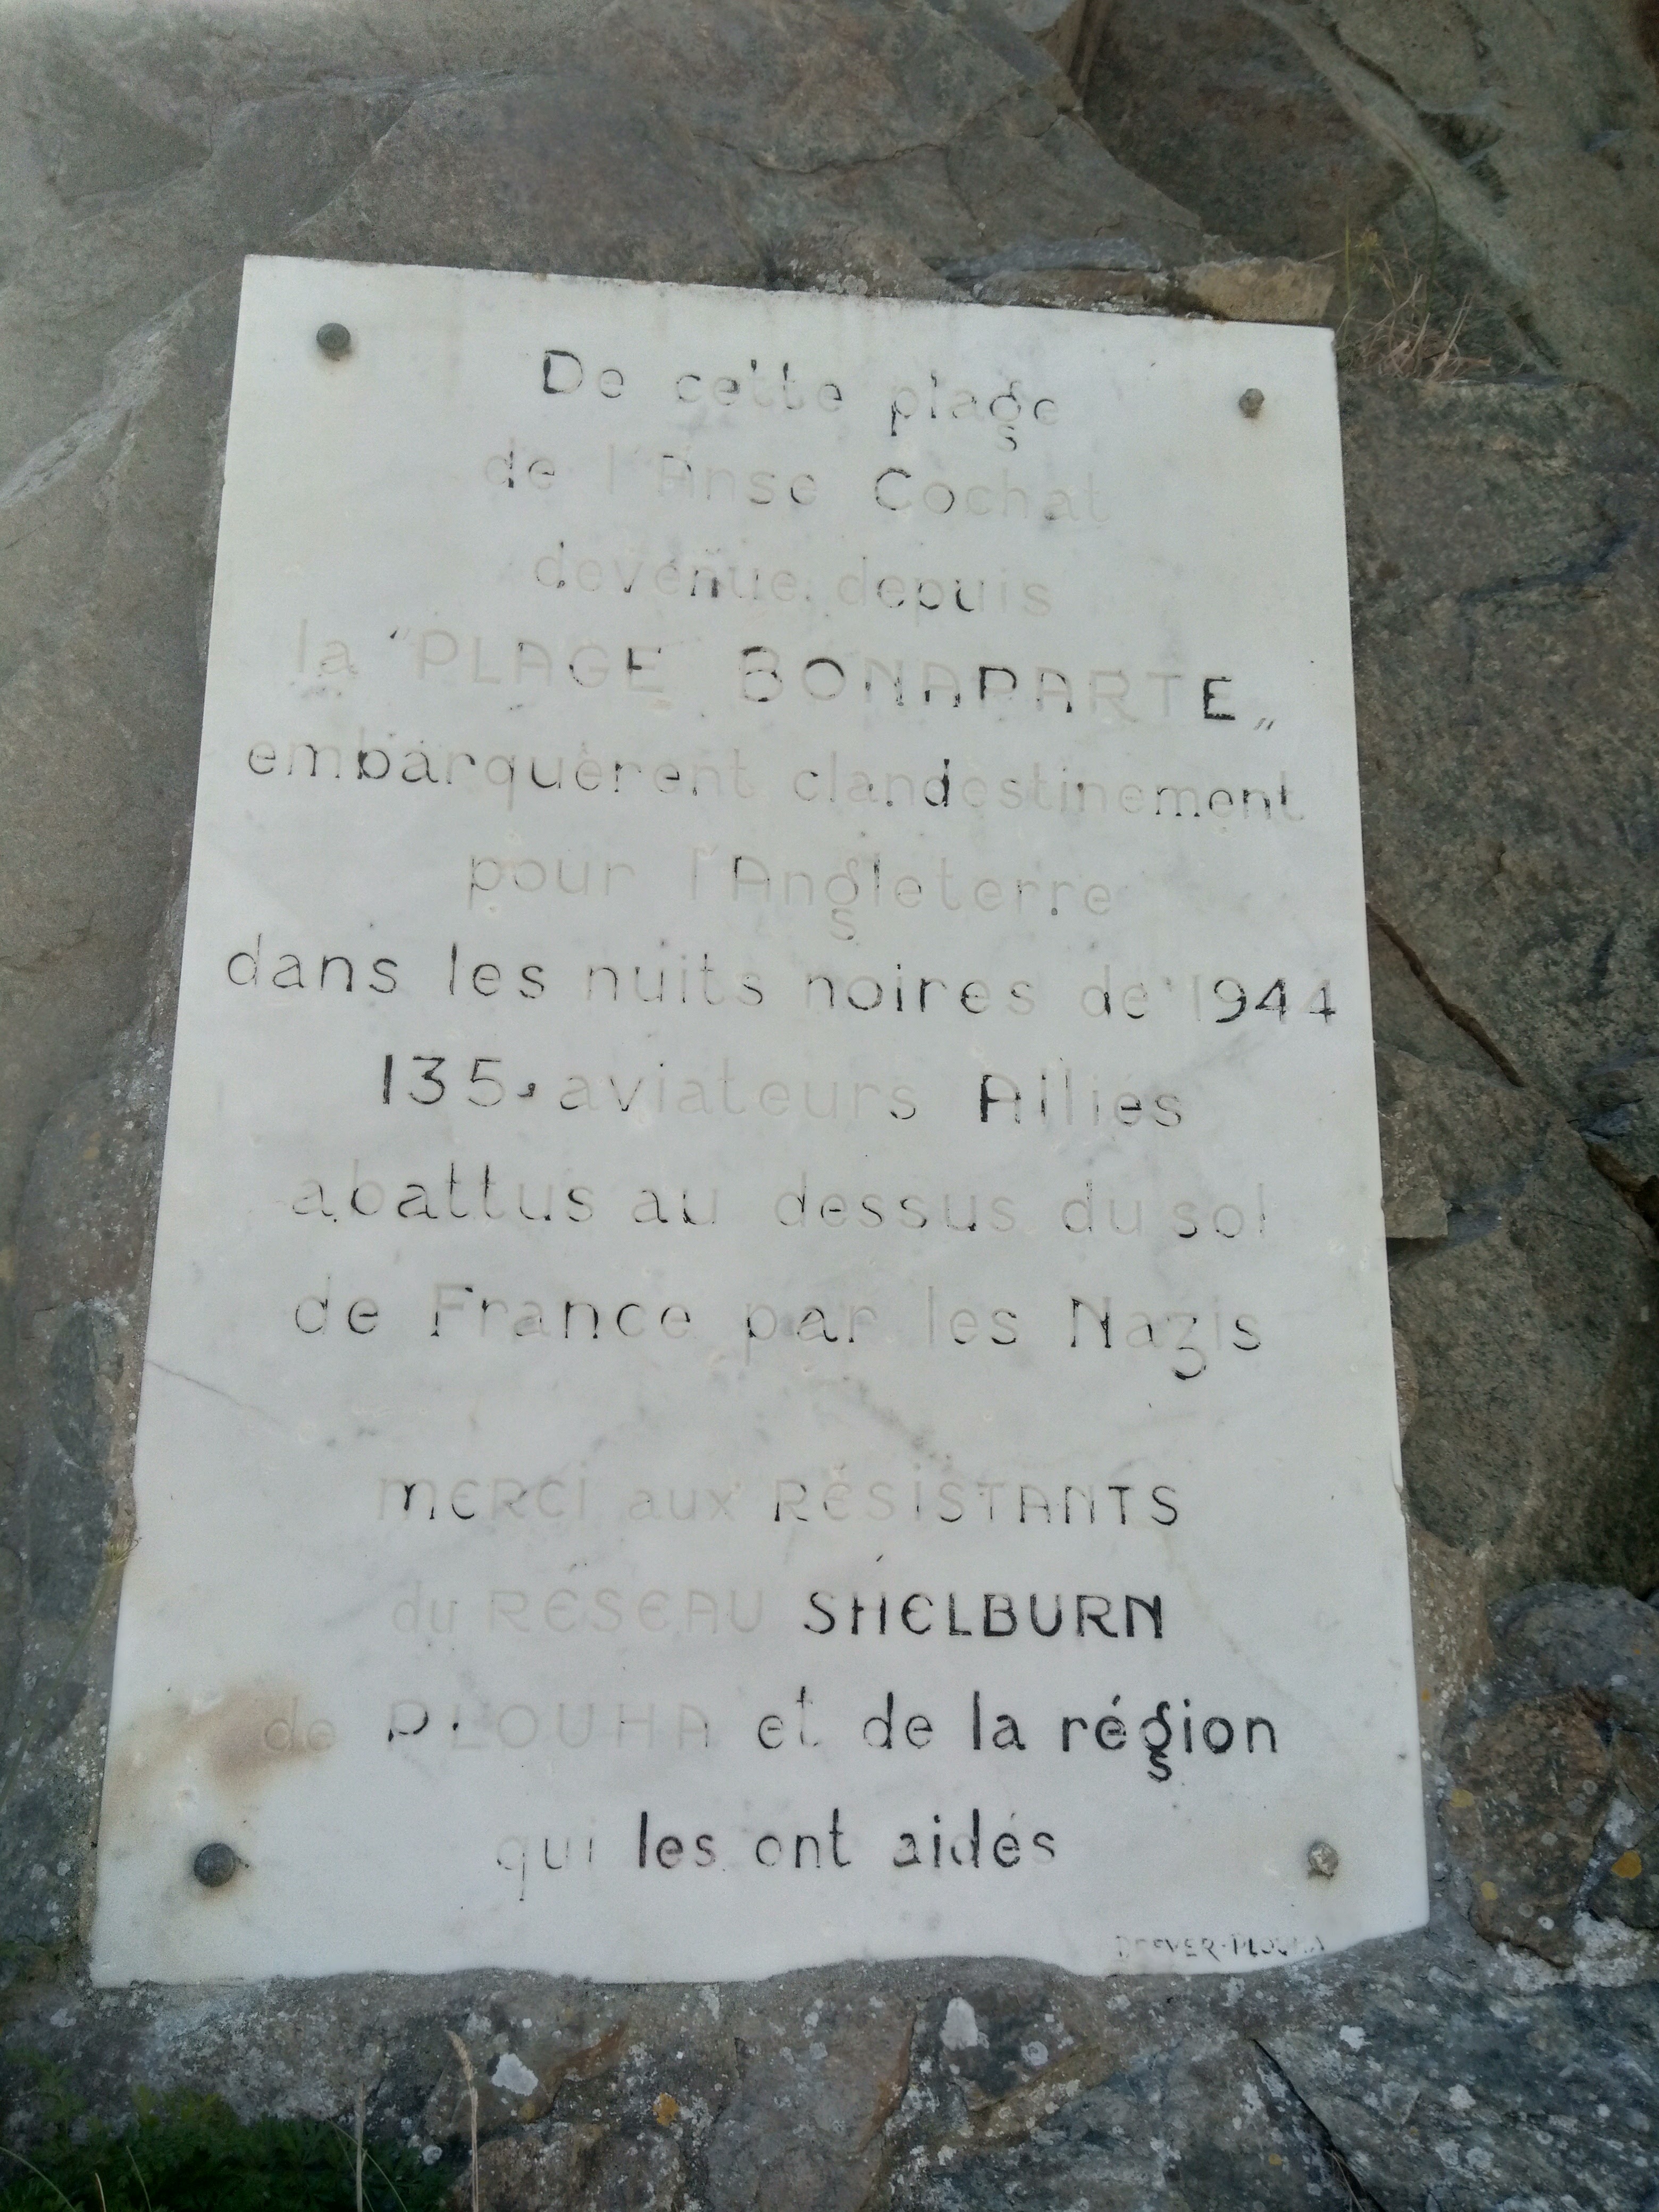 De cette plage
de l'Anse Cochat
devenue depuis
la "PLAGE BONAPARTE„
embarquèrent clandestinement
pour l'Angleterre
dans les nuits noires de 1944
135 aviateurs Alliés
abattus au dessus du sol
de France par les Nazis
MERCI aux RÉSISTANTS
du RÉSEAU SHELBURN
de PLOUHA et de la région
qui les ont aidés
PLOUHA